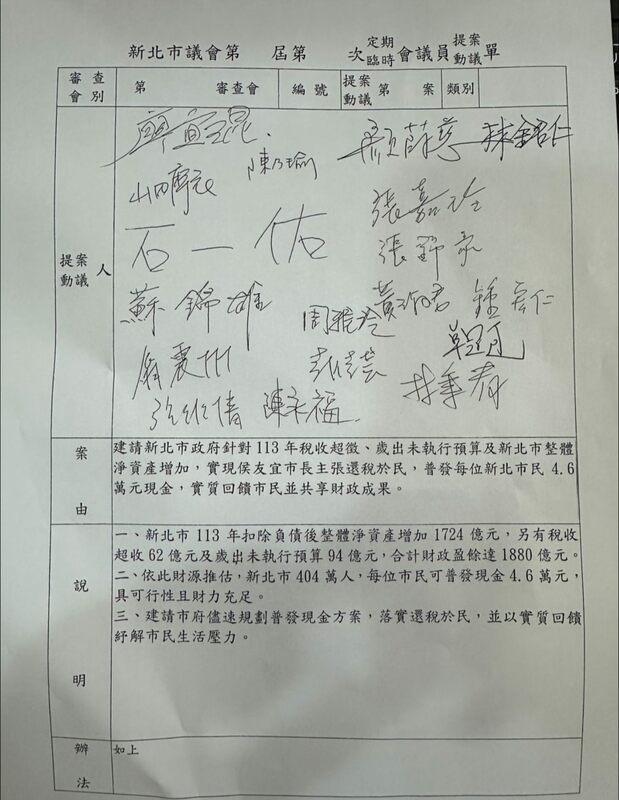 新北市議會第 屆第 次定期臨時會議員提案動議單
審查會別 第 審查會 編號 提案動議第 案 類別
提案動議人
廖宜琨 顏蔚慈 林銘仁
山田摩衣 陳乃瑜
石一佑 張嘉玲
張錦豪
蘇錦雄 周雅玲 黃淑君 鍾宏仁
卓冠廷
彭佳芸
張維倩 陳永福 林秉宥
案由
建請新北市政府針對113年稅收超徵、歲出未執行預算及新北市整體
淨資產增加，實現侯友宜市長主張還稅於民，普發每位新北市民 4.6
萬元現金，實質回饋市民並共享財政成果。
說明
一、新北市113年扣除負債後整體淨資產增加1724億元，另有稅收
超收62億元及歲出未執行預算94億元，合計財政盈餘達1880億元。
二、依此財源推估，新北市404萬人，每位市民可普發現金4.6萬元，
具可行性且財力充足。
三、建請市府儘速規劃普發現金方案，落實還稅於民，並以實質回饋
紓解市民生活壓力。
辦法
如上